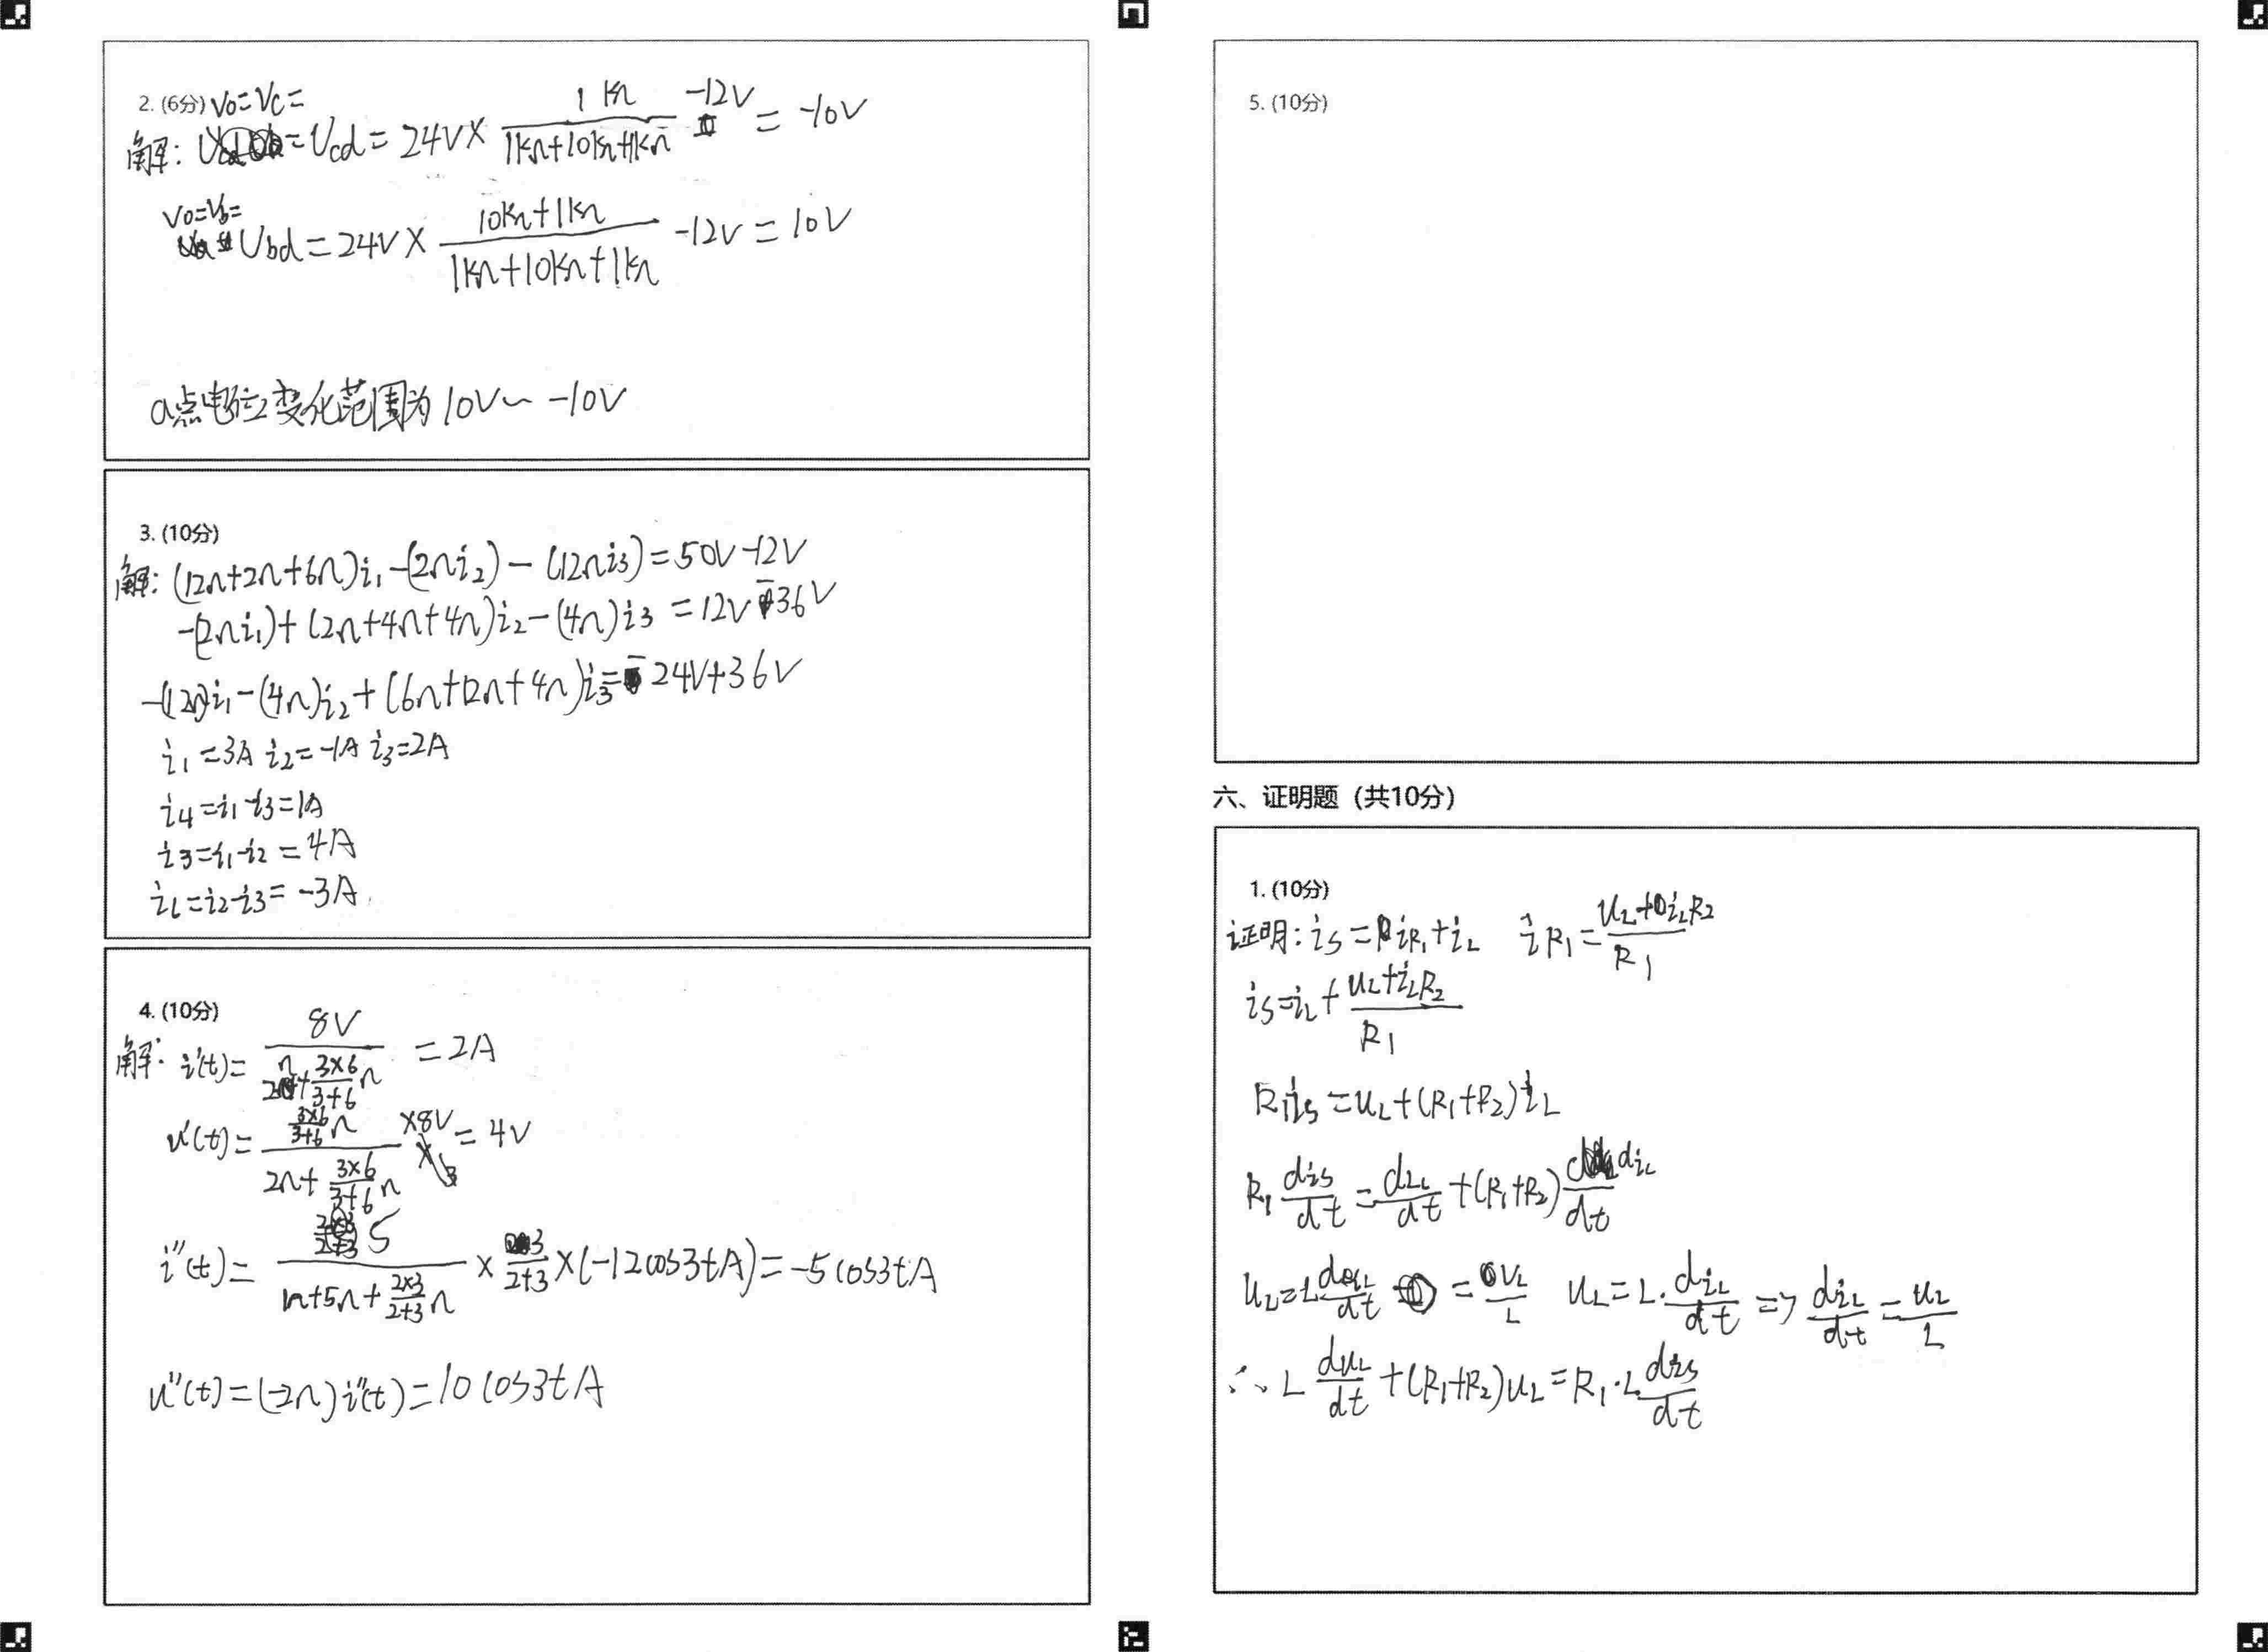 2. (6分) V₀=Vc=
解: =Ucd=24V×1KΩ/(1KΩ+10KΩ+1KΩ) -12V = -10V
V₀=Vb=
Ubd=24V×(10KΩ+1KΩ)/(1KΩ+10KΩ+1KΩ) -12V = 10V
a点电位变化范围为10V~-10V
3. (10分)
解: (12Ω+2Ω+6Ω)i₁-(2Ωi₂)-(12Ωi₃)=50V-12V
-(2Ωi₁)+(2Ω+4Ω+4Ω)i₂-(4Ω)i₃=12V-36V
-(12Ω)i₁-(4Ω)i₂+(6Ω+12Ω+4Ω)i₃=-24V+36V
i₁=3A i₂=-1A i₃=2A
i₄=i₁-i₃=1A
i₃=i₁-i₂=4A
i₆=i₂-i₃=-3A
4. (10分)
解: i'(t)=8V/(2Ω+(3×6)/(3+6)Ω) =2A
u'(t)=((3×6)/(3+6)Ω)/(2Ω+(3×6)/(3+6)Ω) ×8V =4V
i''(t)=5/(Ω+5Ω+(2×3)/(2+3)Ω) × 3/(2+3) ×(-12cos3tA)=-5cos3tA
u''(t)=(-2Ω)i''(t)=10cos3tA
5. (10分)
六、证明题（共10分）
1. (10分)
证明: iS=iR₁+iL iR₁=(uL+iLR₂)/R₁
iS=iL+(uL+iLR₂)/R₁
R₁iS=uL+(R₁+R₂)iL
R₁ diS/dt=duL/dt+(R₁+R₂) diL/dt
uL=L diL/dt =uL/L uL=L·diL/dt => diL/dt=uL/L
∴ L duL/dt+(R₁+R₂)uL=R₁·L diS/dt